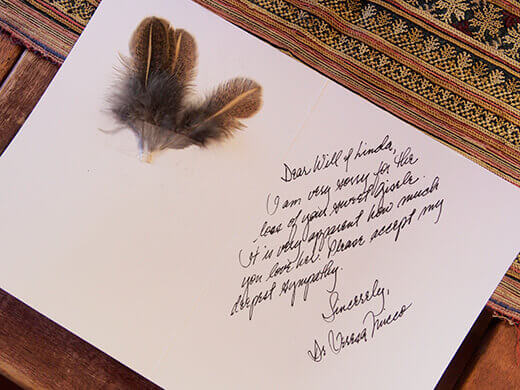 Dear Will & Linda,
I am very sorry for the
loss of your sweet Gisele.
It is very apparent how much
you love her. Please accept my
deepest sympathy.
Sincerely,
Dr. Teresa Fucco